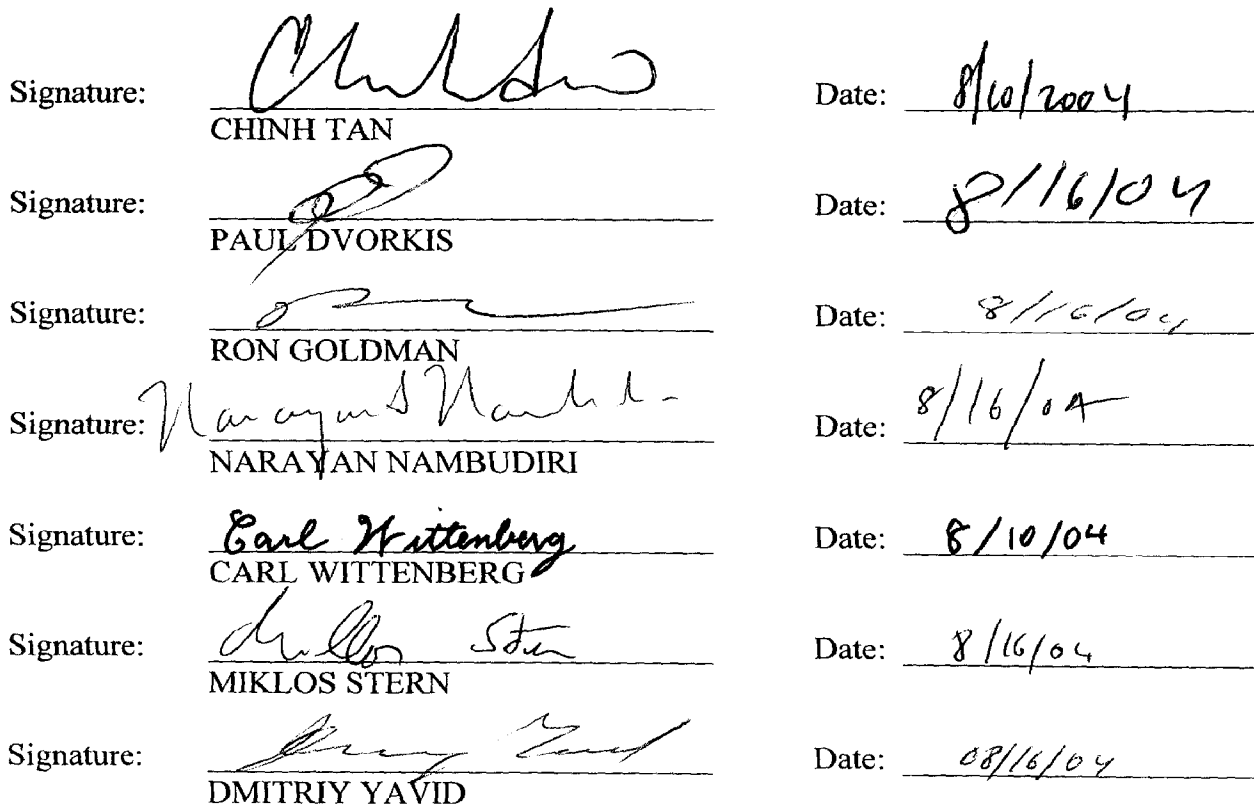 Signature: Date: 8/10/2004
CHINH TAN
Signature: Date: 8/16/04
PAUL DVORKIS
Signature: Date: 8/16/04
RON GOLDMAN
Signature: Narayan Date: 8/16/04
NARAYAN NAMBUDIRI
Signature: Carl Wittenberg Date: 8/10/04
CARL WITTENBERG
Signature: Miklos Stern Date: 8/16/04
MIKLOS STERN
Signature: Date: 08/16/04
DMITRIY YAVID